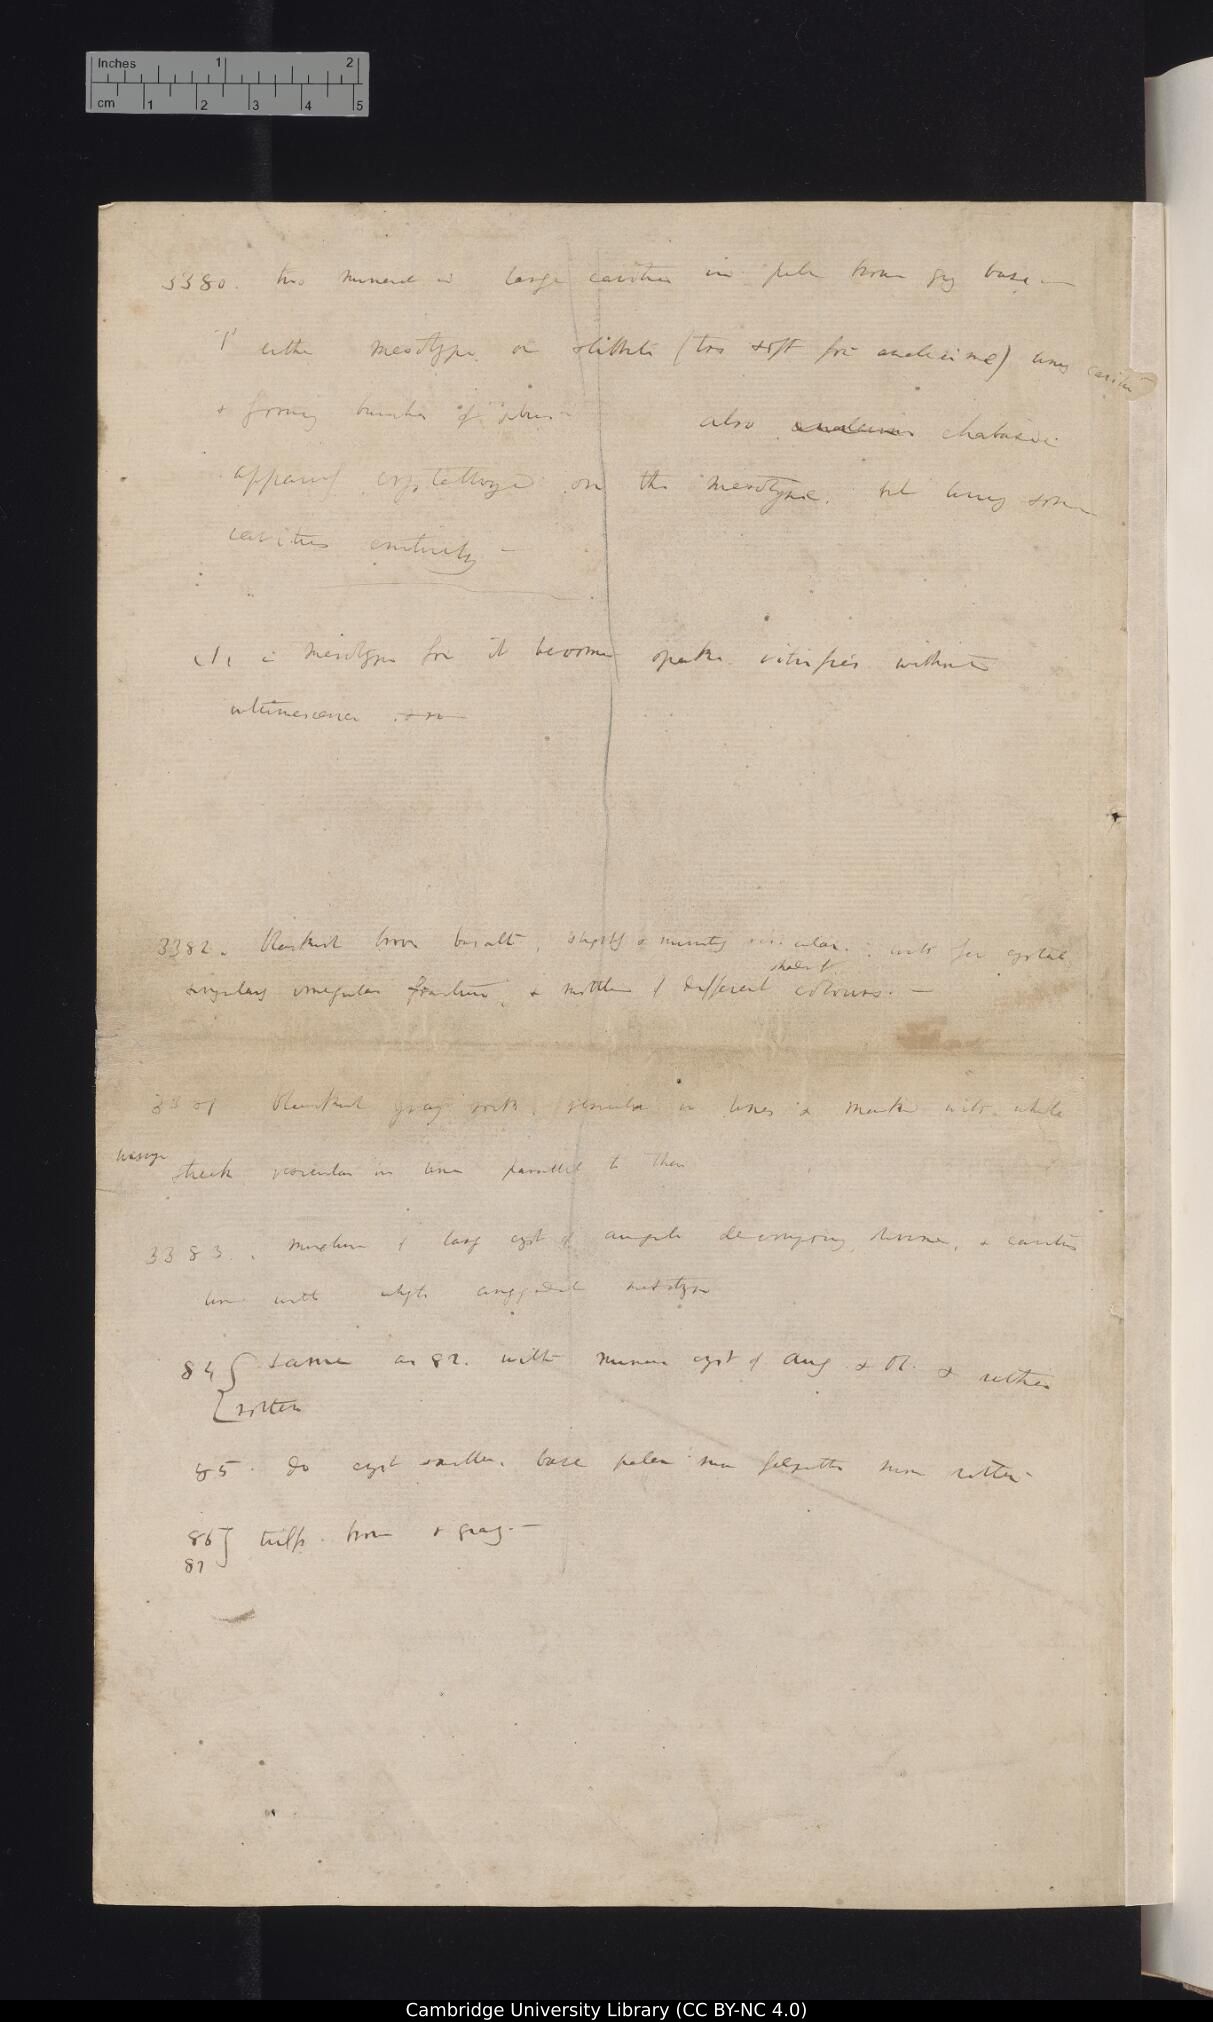 Inches 1 2
cm 1 2 3 4 5
3380. two minerals in large cavities in pale brown grey base —
1st either mesotype or stilbite (too soft for analcime) lining cavities
& forming bunches of
also analcime chabasie
apparently crystallized on the mesotype. but lining some
cavities entirely —
(1) is mesotype for it becomes opake vitrifies without
intumescence
3382. blackish brown basalt, slightly & minutely vesicular. with few crystals
singularly irregular fracture, & mottled of different shades of colours. —
3381 blackish gray rock, vesicular in lines & marked with white
streak vesicular in line parallel to them
3383. mixture of large cryst of augite decomposing olivine, & cavities
line with mesotype
84 same as 82. with numerous cryst of Aug & Ol. & rather
rotten
85. do cryst smaller. base paler more felspathic more rotten —
86 tuffs. brown & gray. —
87
Cambridge University Library (CC BY-NC 4.0)